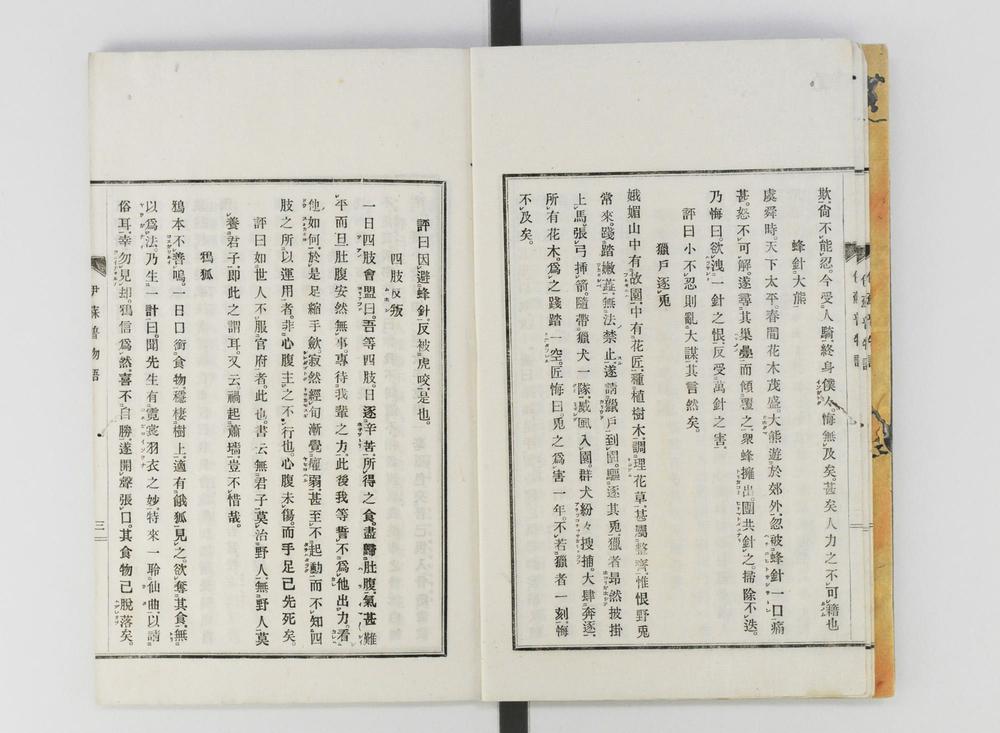 欺尙不能忍。今受人騎終身僕人。悔無及矣。甚矣人力之不可藉也
蜂針大熊
虞舜時。天下太平。春間花木茂盛。大熊遊於郊外。忽被蜂針一口。痛
甚。怒不可解。遂尋其巢壘而傾覆之。衆蜂擁出。圍共針之。掃除不迭。
乃悔曰。欲洩一針之恨。反受萬針之害。
評曰小不忍則亂大謀。其言然矣。
獵戶逐兎
娥媚山中有故園。中有花匠。種植樹木。調理花草。甚屬整齊。惟恨野兎
常來踐踏嫩蕋。無法禁止。遂請獵戶到園。驅逐其兎。獵者昂然披掛
上馬。張弓挿箭。隨帶獵犬一隊。威風入園。群犬紛々搜捕。大肆奔逐。
所有花木。爲之踐踏一空。匠悔曰。兎之爲害一年。不若獵者一刻。悔
不及矣。
評曰因避蜂針。反被虎咬。是也。
四肢反叛
一日四肢會盟曰。吾等四肢。日逐辛苦。所得之食。盡歸肚腹。氣甚難
平。而且肚腹安然無事。專待我輩之力。此後我等誓不爲他出力。看
他如何。於是足縮手歛。寂然經旬。漸覺疲弱。甚至不起動。而不知四
肢之所以運用者。非心腹主之不行也。心腹未傷。而手足已先死矣。
評曰如世人不服官府者。此也。書云無君子莫治野人。無野人莫
養君子。即此之謂耳。又云禍起蕭墻。豈不惜哉。
鴉狐
鴉本不善鳴。一日口銜食物。穩棲樹上。適有餓狐。見之欲奪其食。無
以爲法。乃生一計曰。聞先生有霓裳羽衣之妙。特來一聆仙曲。以請
俗耳。幸勿見却。鴉信爲然。喜不自勝。遂開聲張口。其食物已脫落矣。
伊蘇普物語
三